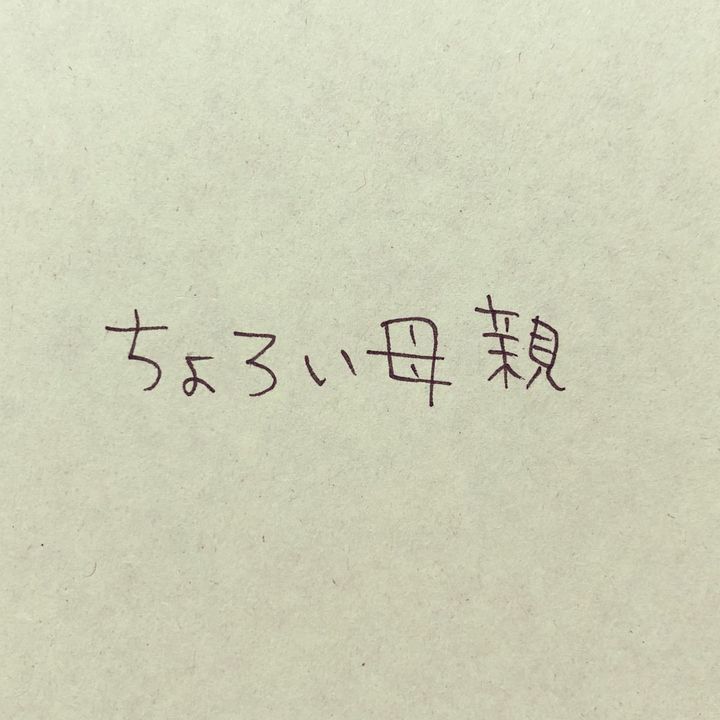 ちょろい母親